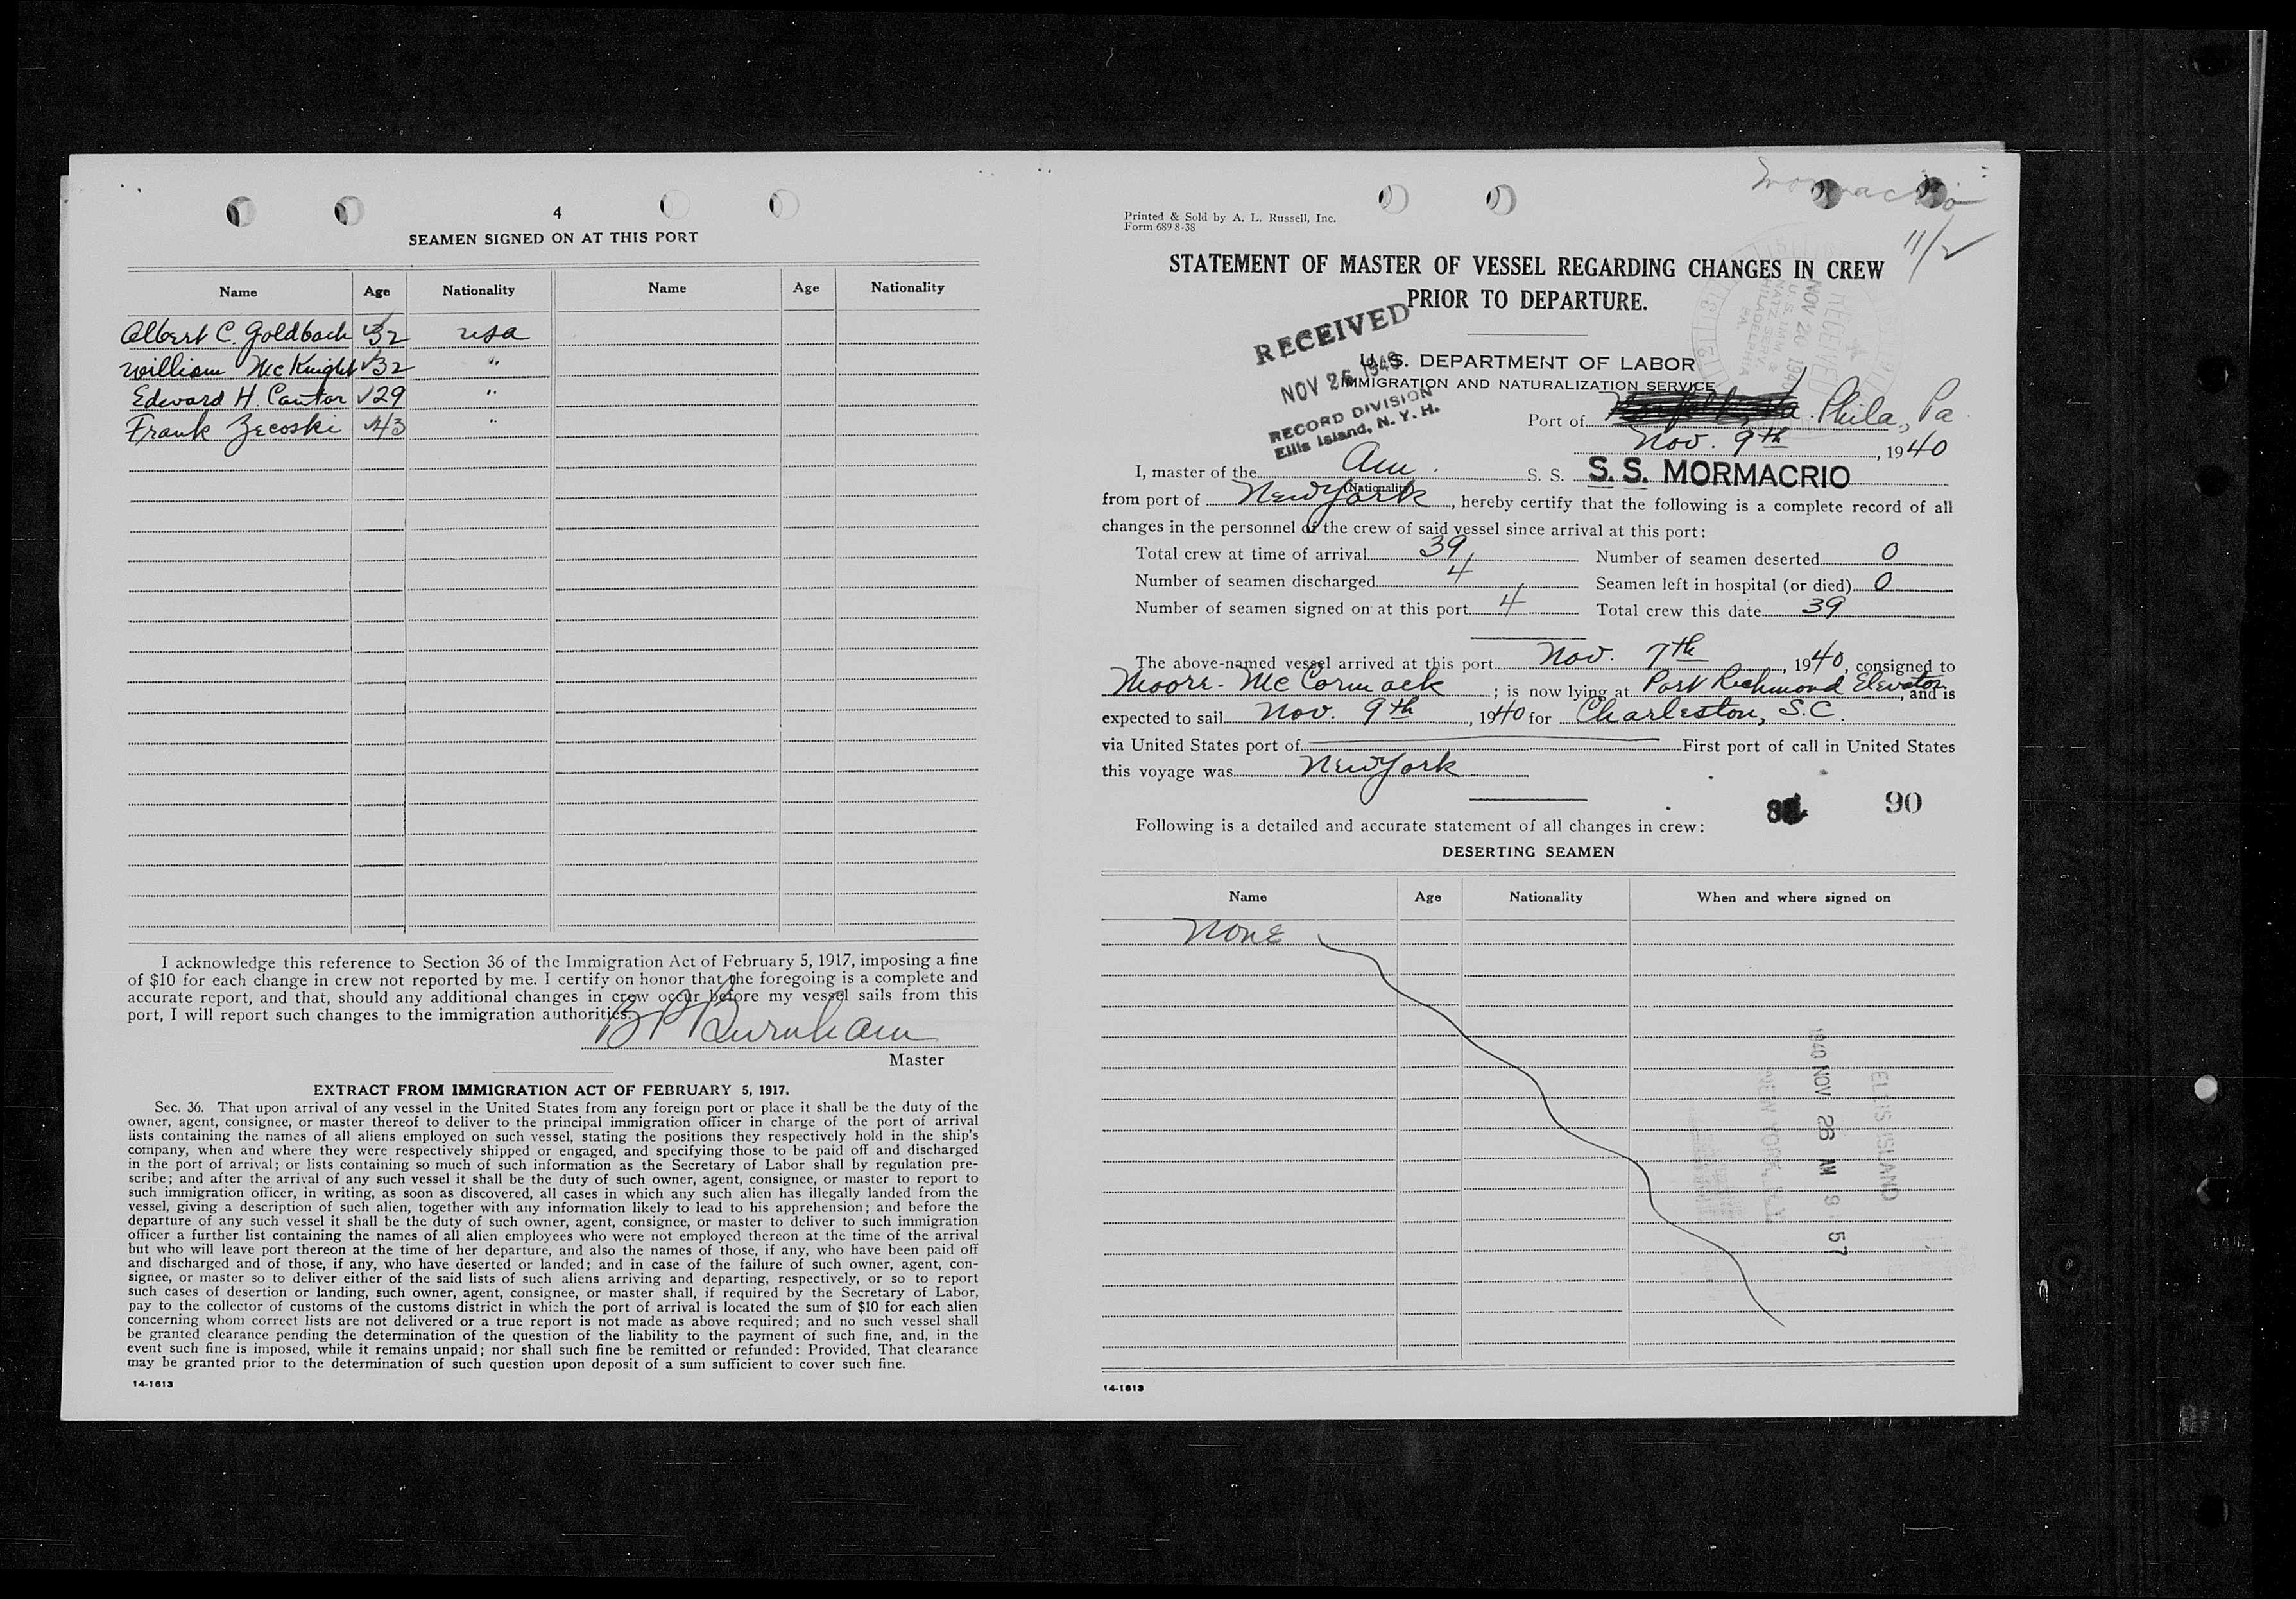 4
SEAMEN SIGNED ON AT THIS PORT
Name Age Nationality Name Age Nationality
Albert C. Goldbach 32 USA
William McKnight 32 "
Edward H. Cantor 29 "
Frank Zecoski 43 "
I acknowledge this reference to Section 36 of the Immigration Act of February 5, 1917, imposing a fine
of $10 for each change in crew not reported by me. I certify on honor that the foregoing is a complete and
accurate report, and that, should any additional changes in crew occur before my vessel sails from this
port, I will report such changes to the immigration authorities.
B P Burnham
Master
EXTRACT FROM IMMIGRATION ACT OF FEBRUARY 5, 1917.
Sec. 36. That upon arrival of any vessel in the United States from any foreign port or place it shall be the duty of the
owner, agent, consignee, or master thereof to deliver to the principal immigration officer in charge of the port of arrival
lists containing the names of all aliens employed on such vessel, stating the positions they respectively hold in the ship's
company, when and where they were respectively shipped or engaged, and specifying those to be paid off and discharged
in the port of arrival; or lists containing so much of such information as the Secretary of Labor shall by regulation pre-
scribe; and after the arrival of any such vessel it shall be the duty of such owner, agent, consignee, or master to report to
such immigration officer, in writing, as soon as discovered, all cases in which any such alien has illegally landed from the
vessel, giving a description of such alien, together with any information likely to lead to his apprehension; and before the
departure of any such vessel it shall be the duty of such owner, agent, consignee, or master to deliver to such immigration
officer a further list containing the names of all alien employees who were not employed thereon at the time of the arrival
but who will leave port thereon at the time of her departure, and also the names of those, if any, who have been paid off
and discharged and of those, if any, who have deserted or landed; and in case of the failure of such owner, agent, con-
signee, or master so to deliver either of the said lists of such aliens arriving and departing, respectively, or so to report
such cases of desertion or landing, such owner, agent, consignee, or master shall, if required by the Secretary of Labor,
pay to the collector of customs of the customs district in which the port of arrival is located the sum of $10 for each alien
concerning whom correct lists are not delivered or a true report is not made as above required; and no such vessel shall
be granted clearance pending the determination of the question of the liability to the payment of such fine, and, in the
event such fine is imposed, while it remains unpaid; nor shall such fine be remitted or refunded: Provided, That clearance
may be granted prior to the determination of such question upon deposit of a sum sufficient to cover such fine.
14-1613
Mormacrio
11/2
Printed & Sold by A. L. Russell, Inc.
Form 689 8-38
STATEMENT OF MASTER OF VESSEL REGARDING CHANGES IN CREW
PRIOR TO DEPARTURE.
RECEIVED
NOV 26 1940
RECORD DIVISION
Ellis Island, N. Y. H.
RECEIVED
NOV 20 1940
U. S. IMM. &
NATZ. SERV.
PHILADELPHIA
PA.
U. S. DEPARTMENT OF LABOR
IMMIGRATION AND NATURALIZATION SERVICE
Port of Phila., Pa
Nov. 9th, 1940
I, master of the Am. S. S. S. S. MORMACRIO
(Nationality)
from port of New York, hereby certify that the following is a complete record of all
changes in the personnel of the crew of said vessel since arrival at this port:
Total crew at time of arrival 39 Number of seamen deserted 0
Number of seamen discharged 4 Seamen left in hospital (or died) 0
Number of seamen signed on at this port 4 Total crew this date 39
The above-named vessel arrived at this port Nov. 7th, 1940, consigned to
Moore-McCormack; is now lying at Port Richmond Elevator, and is
expected to sail Nov. 9th, 1940 for Charleston, S.C.
via United States port of First port of call in United States
this voyage was New York
90
Following is a detailed and accurate statement of all changes in crew:
DESERTING SEAMEN
Name Age Nationality When and where signed on
None
ELLIS ISLAND
1940 NOV 26 AM 9 57
NEW YORK, N.Y.
14-1613